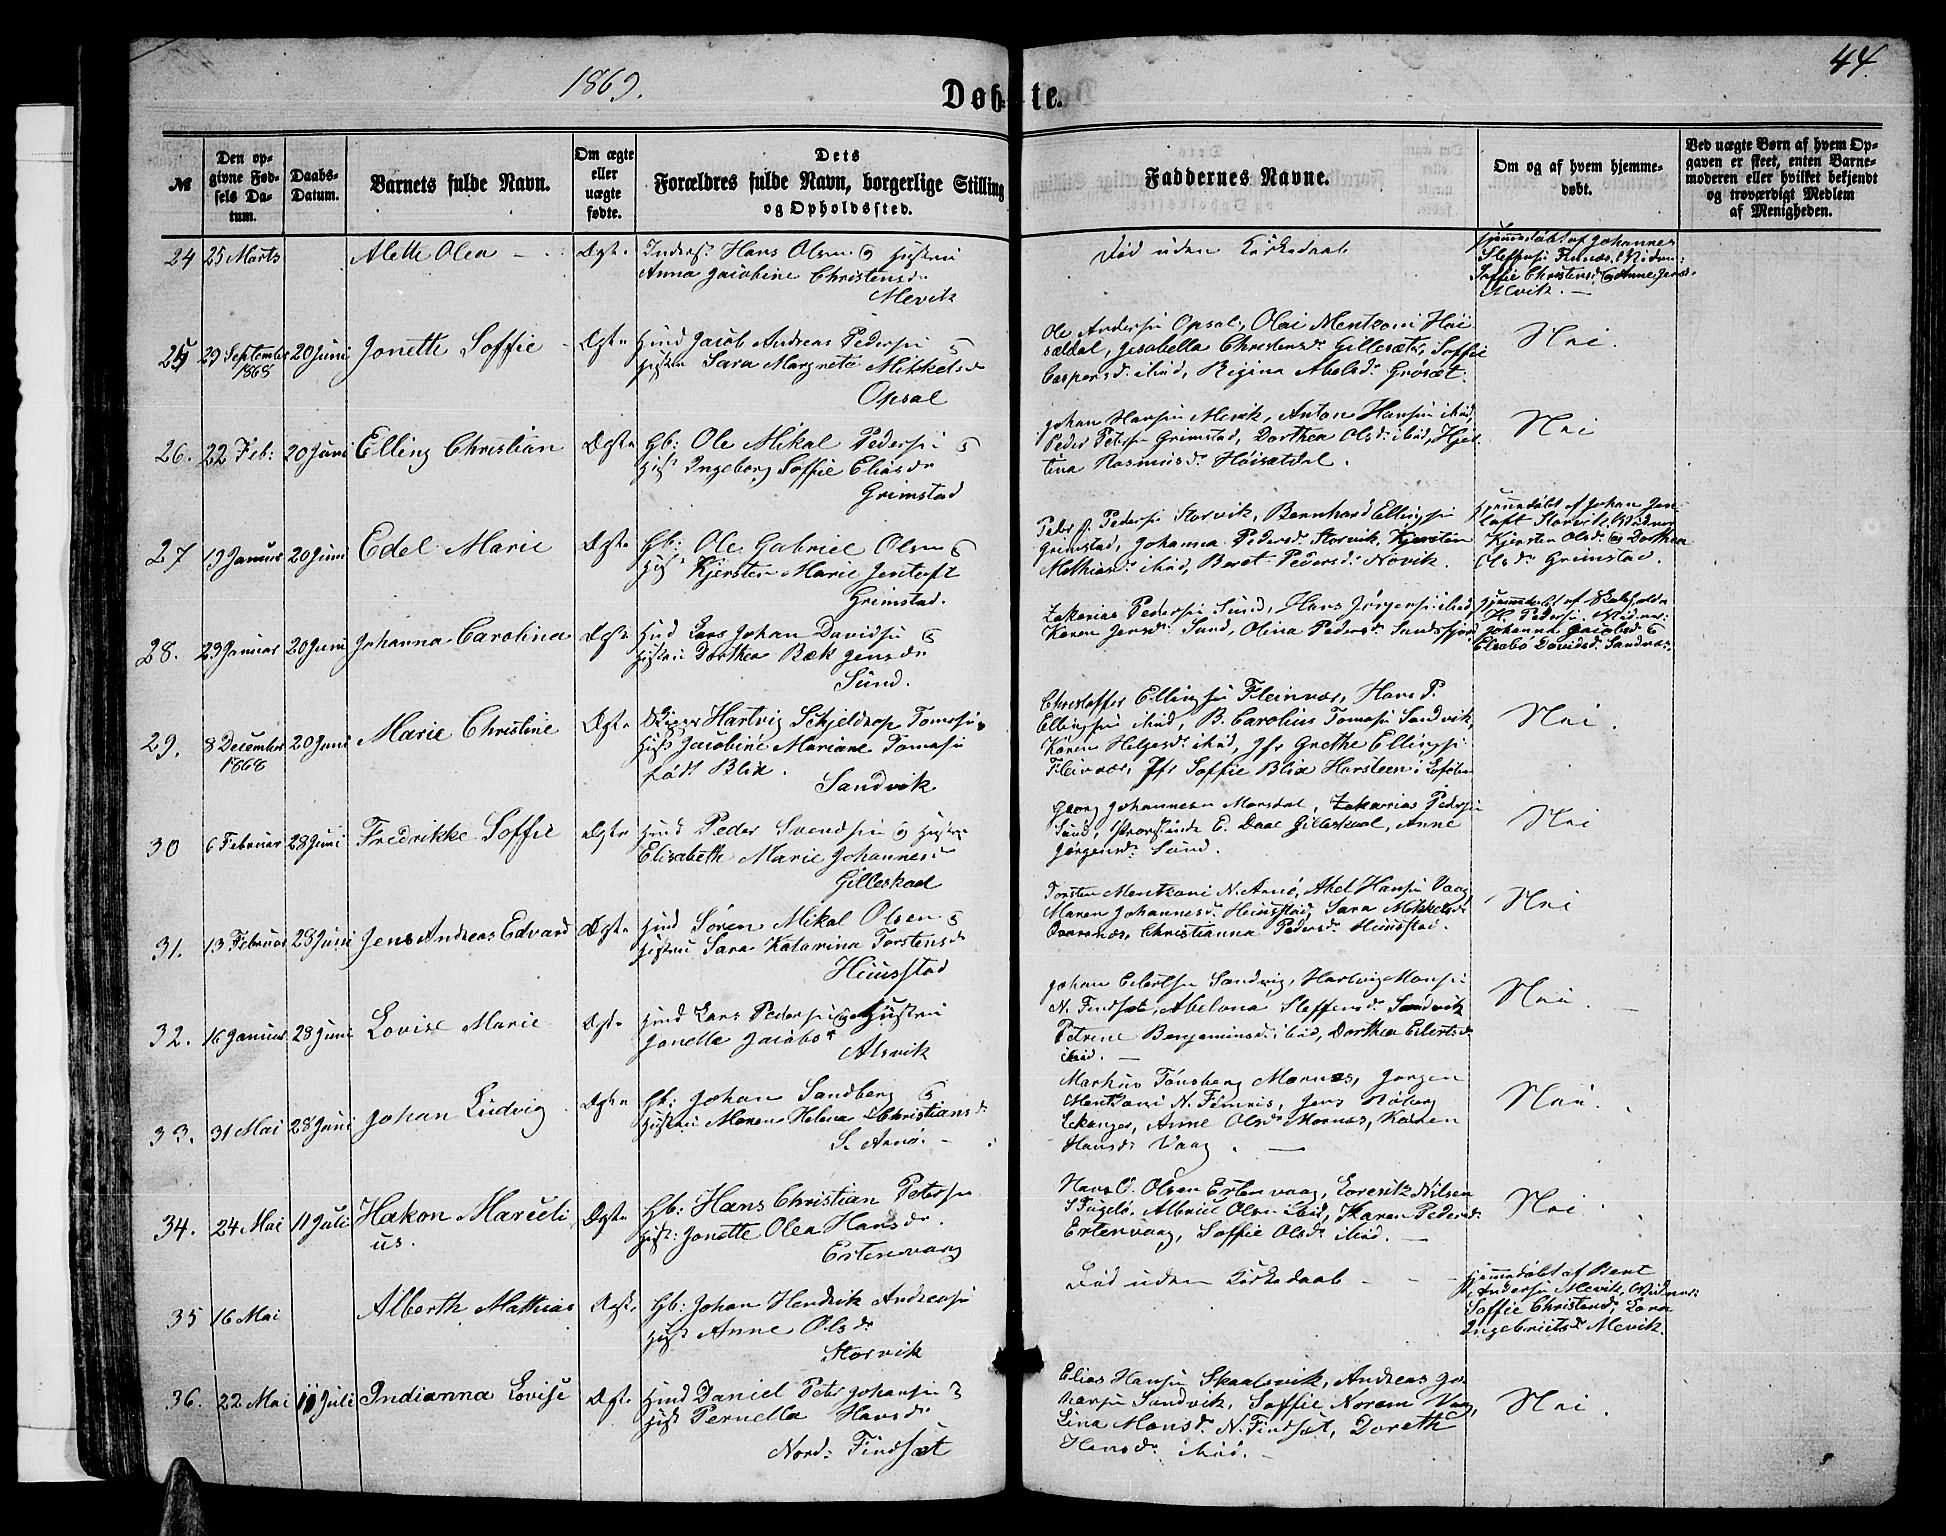 1869.
Døbte.
44.
№
Den opgivne Fødsels Datum.
Daabs-Datum.
Barnets fulde Navn.
Om ægte eller uægte fødte.
Dets Forældres fulde Navn, borgerlige Stilling og Opholdssted.
Faddernes Navne.
Om og af hvem hjemmedøbt.
Ved uægte Børn af hvem Opgaven er skeet, enten Barnemoderen eller hvilket bekjendt og troværdigt Medlem af Menigheden.
24 25 Marts Alette Olea Ægte Hans Olsen og Hustru
Anna Jacobine Christensdr
Mevik
Død uden Kirkedaab
Hjemmedøbt af Johannes
Steffensen Finnes, Vidner:
Soffie Christensdr og Anne Jensdr
Mevik.
25 29 September 1868 20 Juni Jonette Soffie Ægte Hmd Jacob Andreas Pedersen &
Hustru Sara Margrete Mikkelsdr
Opsal
Ole Andersen Opsal, Olai Mentzoni Høi
sæthal, Jesabella Christensdr Gillesæter, Soffie
Caspersdr ibid, Regina Abelsdr Grøsæt.
Nei.
26. 22 Feb: 20 Juni Elling Christian Ægte Gb: Ole Mikal Pedersen &
Hust Ingeborg Soffie Eliasdr
Grimstad
Johan Hansen Mevik, Anton Hansen ibid,
Peder Petersen Grimstad, Dorthea Olsdr ibid,
Rasmusdr Høisætdal.
Nei
27 19 Januar 20 Juni Edel Marie Ægte Gb: Ole Gabriel Olsen &
Hust Kjersten Marie Jentoft
Grimstad.
Peder J. Pedersen Storvik, Bernhard Ellingsen
Grimstad, Johanna Pedersdr Storvik, Kjersten
Mathiasdr ibid, Beret Pedersdr Novik.
Hjemmedøbt af Johan Jen
toft Storvik, Vidner
Kjersten Olsdr og Dorthea
Olsdr Grimstad.
28. 29 Januar 20 Juni Johanna Carolina Ægte Hmd Lars Johan Davidsen &
Hustru Dorthea Bæk Jensdr
Sund.
Zakarias Pedersen Sund, Hans Jørgensen ibid,
Karen Jensdr Sund, Olina Pedersdr Sandsfjord
Hjemmedøbt af Skoleholder
H. Pedersen, Vidner:
Johanna Jacobsdr &
Elsabe Davidsdr
29. 8 December 1868 20 Juni Marie Christine Ægte Hartvig Schjeldrop Tomasen &
Hust Jacobine Mariane Tomasen
født Blix.
Sandvik
Christoffer Ellingsen Fleinvær, Hans P.
Ellingsen ibid, B. Carolius Tomasen Sandvik,
Karen Helgesdr ibid, Jfr Grethe Ellingsen
Fleinvær, Jfr Soffie Blix Harsteen i Lofoten
Nei.
30 6 Februar 28 Juni Fredrikke Soffie Ægte Hmd Peder Svendsen og Hustru
Elisabeth Marie Johannesdr
Gilleskaal
Georg Johannesen Marsdal, Zakarias Pedersen
Sund, Provstinde E. Daae Gilleskaal, Anne
Jørgensdr Sund.
Nei
31. 13 Februar 28 Juni Jens Andreas Edvard Ægte Hmd Søren Mikal Olsen &
Hustru Sara Katarina Torstensdr
Huusstad
Torsten Mentzoni N. Arnø, Axel Hansen Vaag
Maren Johannesdr Huusstad, Sara Mikkelsdr
Christianna Pedersdr Huusstad.
Nei
32. 16 Januar 28 Juni Lovise Marie Ægte Hmd Lars Pedersen og Hustru
Jonella Jacobsdr
Alsvik
Johan Eilertsen Sandvig, Hartvig Monsen
N. Findsæt, Abelona Steffensdr Sandvik
Petrine Benjaminsdr ibid, Dorthea Eilertsdr
ibid.
Nei.
33. 31 Mai 28 Juni Johan Ludvig Ægte Gb: Johan Sandberg &
Hustru Maren Helena Christiansdr
S. Arnø.
Markus Tønsberg Mornæs, Jørgen
Mentzoni N. Jens
Anne Olsdr Mornæs, Karen
Hansdr Vaag.
Nei.
34. 24 Mai 11 Juli Hakon Marceli
us. Ægte Gb: Hans Christian Petersen
Hust: Jonette Olea Hansdr.
Ertenvaag
Hans O. Olsen Ertenvaag, Nilsen
S Fugelø, Albriel Olsen ibid, Karen Pedersdr
Ertenvaag, Soffie Olsdr ibid.
Nei
35 16 Mai Alberth Mathias Ægte Gb: Johan Hendrik Andreasen
Hust Anne Olsdr
Storvik
Død uden Kirkedaab
Hjemmedøbt af Bent
Andersen Mevik, Vidner:
Soffie Christensdr, Lara
Ingebriitsdr Mevik.
36. 22 Mai 11 Juli Indianna Lovise Ægte Hmd Daniel Peter Johansen &
Hust Pernella Hansdr
Nord: Findsæt
Elias Hansen Skaalsvik, Andreas Jo
hansen Sandvik, Soffie Norum Vaag,
Lina Monsdr N. Findsæt, Doreth
Hansdr ibid.
Nei.